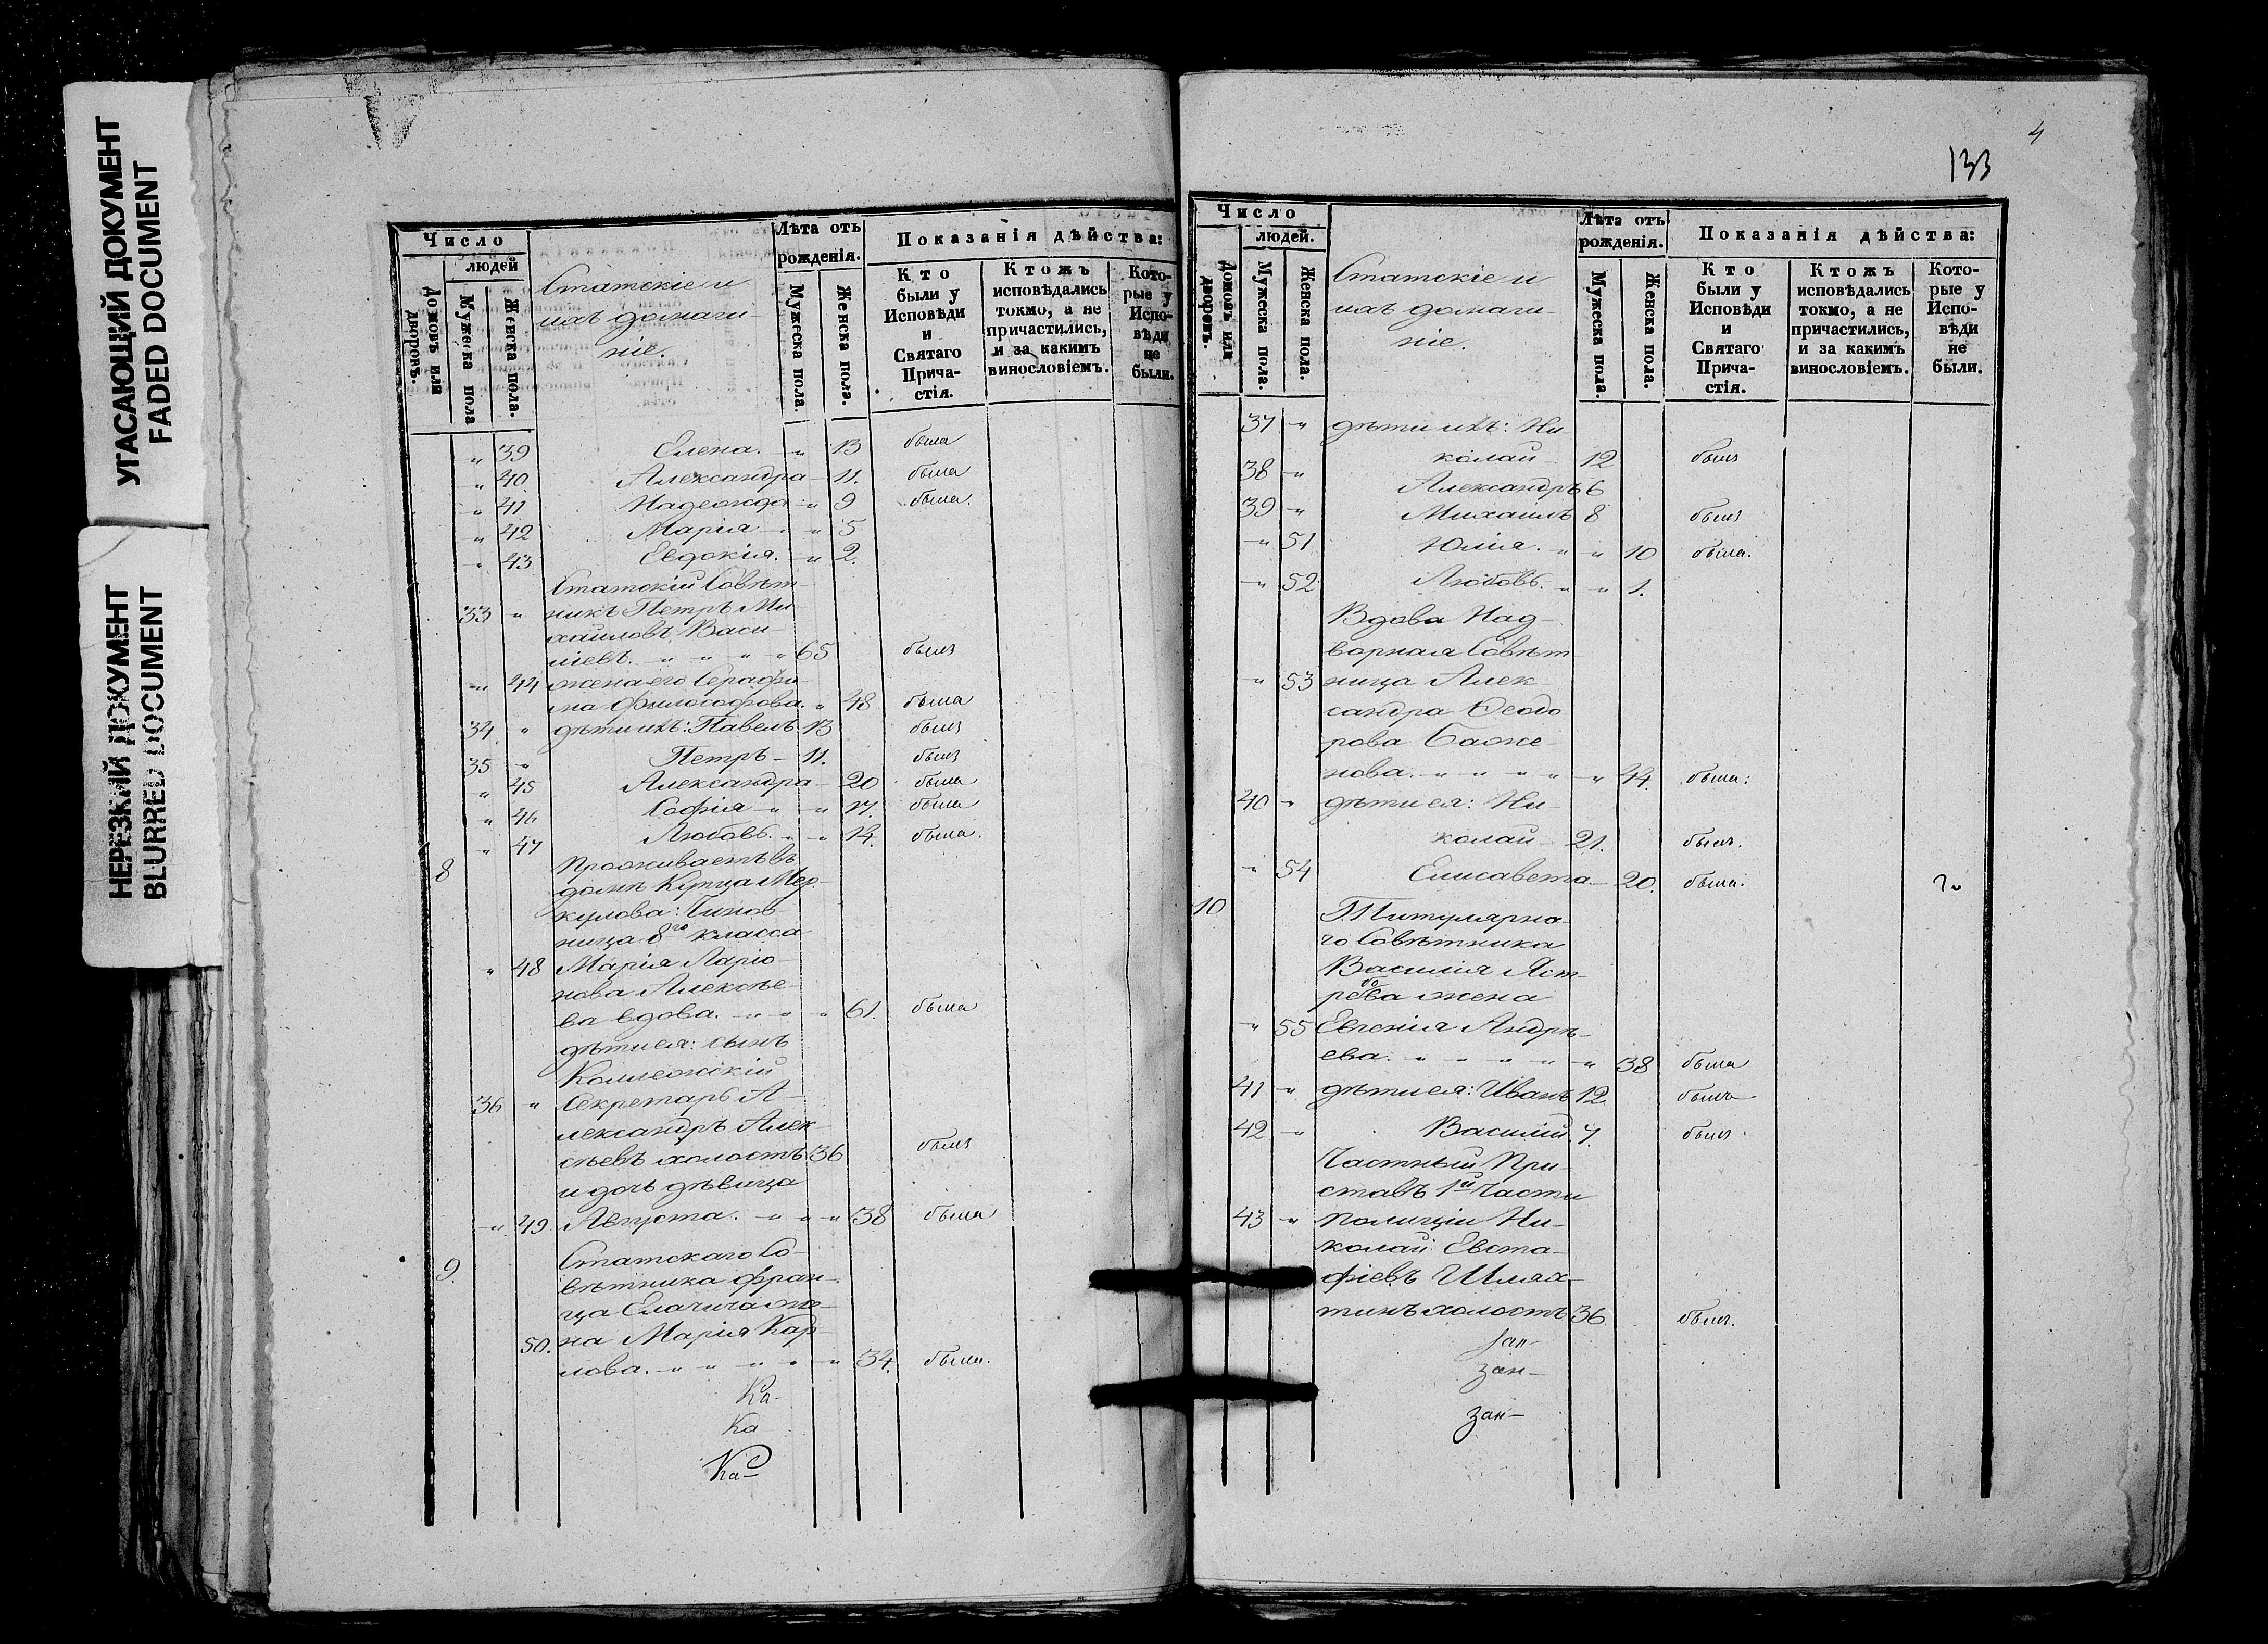 УГАСАЮЩИЙ ДОКУМЕНТ
FADED DOCUMENT
НЕРЕЗКИЙ ДОКУМЕНТ
BLURRED DOCUMENT
Число
людей
Домовъ или дворовъ.
Мужеска пола
Женска пола.
Статскіе и
ихъ домаш-
ніе.
Лѣта отъ
рожденія.
Мужеска пола.
Женска пола.
Показанія дѣйства:
Кто
были у
Исповѣди
и
Святаго
Прича-
стія.
Ктожъ
исповѣдались
токмо, а не
причастились,
и за какимъ
винословіемъ.
Кото-
рые у
Испо-
вѣди
не
были.
" 39 Елена. " 13 была
" 40 Александра 11. была
" 41 Надежда " 9 была.
" 42 Марія " 5
" 43 Евдокія. " 2.
Статскій Совѣт-
33 " никъ Петръ Ми-
хаиловъ Васи-
ліевъ. " " " " 65 былъ
" 44 жена его Серафи-
ма Философова. " 48 была
34 " дѣти ихъ: Павелъ 13 былъ
35 " Петръ 11. былъ
" 45 Александра 20 была
" 46 Софія " " 17. была
" 47 Любовь. " " 14. была.
8 Проживаетъ въ
домѣ Купца Мер-
кулова: Чинов-
ница 8го класса
" 48 Марія Ларіо-
нова Алексѣе-
ва вдова. " " " 61. была
дѣти ея: сынъ
Коллежскій
36 " Секретарь А-
лександръ Алек-
сѣевъ холостъ 36 былъ
и дочь дѣвица
" 49 Августа. " " " 38 была
9. Статскаго Со-
вѣтника Фран-
ца Елачича же-
50. на Марія Кар-
лова. " " " " " 34. была.
Ка-
Ка
Ка-
4
133
Число
людей.
Домовъ или дворовъ.
Мужеска пола.
Женска пола.
Статскіе и
ихъ домаш-
ніе.
Лѣта отъ
рожденія.
Мужеска пола.
Женска пола.
Показанія дѣйства:
Кто
были у
Исповѣди
и
Святаго
Прича-
стія.
Ктожъ
исповѣдались
токмо, а не
причастились,
и за какимъ
винословіемъ.
Кото-
рые у
Испо-
вѣди
не
были.
37 " дѣти ихъ: Ни-
колай 12 былъ
38 " Александръ 6
39 " Михаилъ 8 былъ
" 51 Юлія. " " 10 была.
" 52 Любовь. " " 1.
Вдова Над-
ворная Совѣт-
" 53 ница Алек-
сандра Ѳеодо
рова Баже-
нова. " " " " " 44. была:
40 " дѣти ея: Ни-
колай 21. былъ.
" 54 Елисавета 20. была.
10 Титулярна-
го Совѣтника
Василія Яст-
ребова жена
" 55 Евгенія Андрѣ-
ева. " " " " " 38 была
41 " дѣти ея: Иванъ 12 былъ
42 " Василій 7. былъ
Частный При-
ставъ 1й Части
43 " полиціи Ни-
колай Евста-
фіевъ Шлях-
тинъ холостъ 36 былъ.
зан-
зан-
зан-